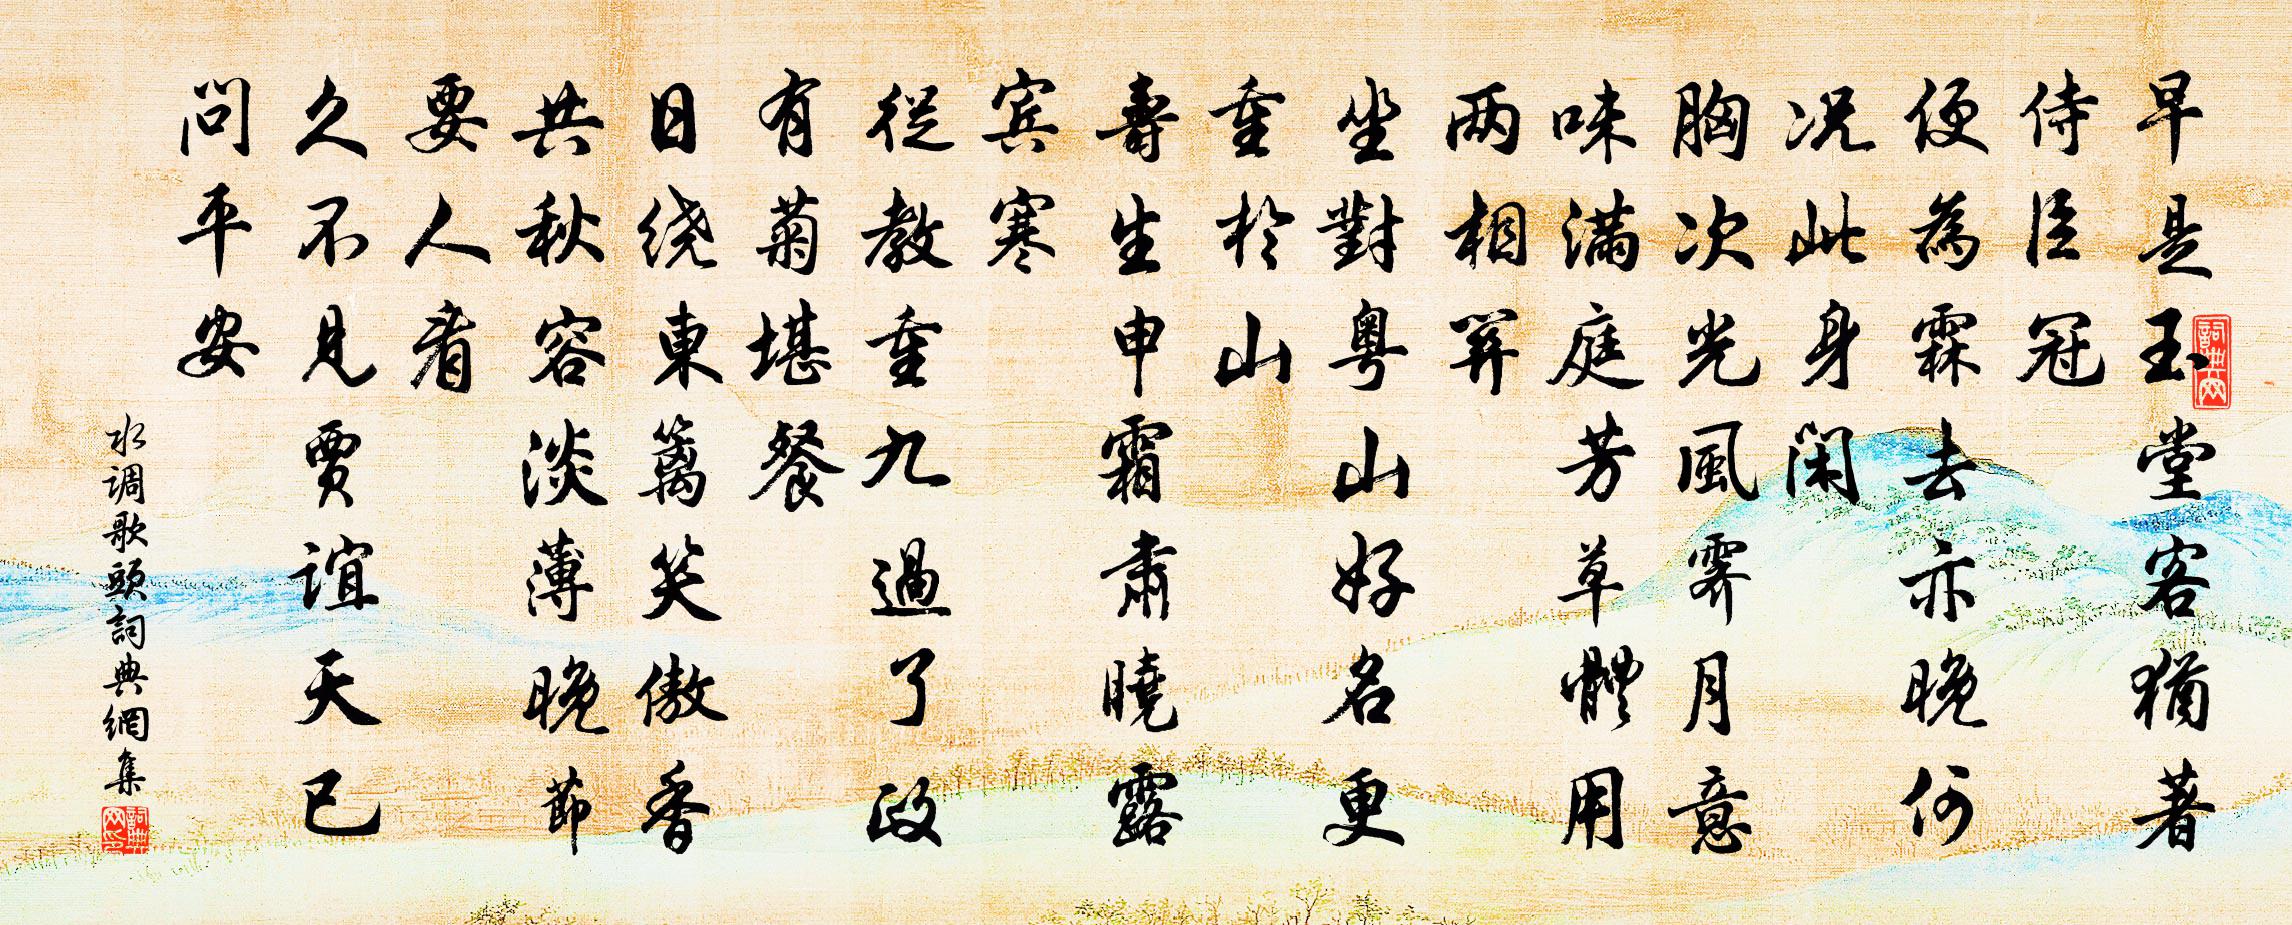 早是玉堂客猶著
侍臣冠
便為霖去亦晚何
况此身閑
胸次光風霽月意
味滿庭芳草體用
兩相關
坐對粤山好名更
重於山
壽生申霜肅曉露
賓寒
從教重九過了政
有菊堪餐
日绕東籬笑傲香
共秋容淡薄晚節
要人看
久不見賈誼天已
問平安
水调歌頭詞典網集
詞典网
詞典网印